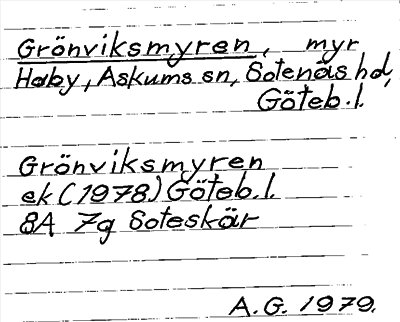 Grönviksmyren, myr
Haby, Askums sn, Sotenäs hd,
Göteb. l.
Grönviksmyren
ek (1978) Göteb. l.
8A 7g Soteskär
A. G. 1979.